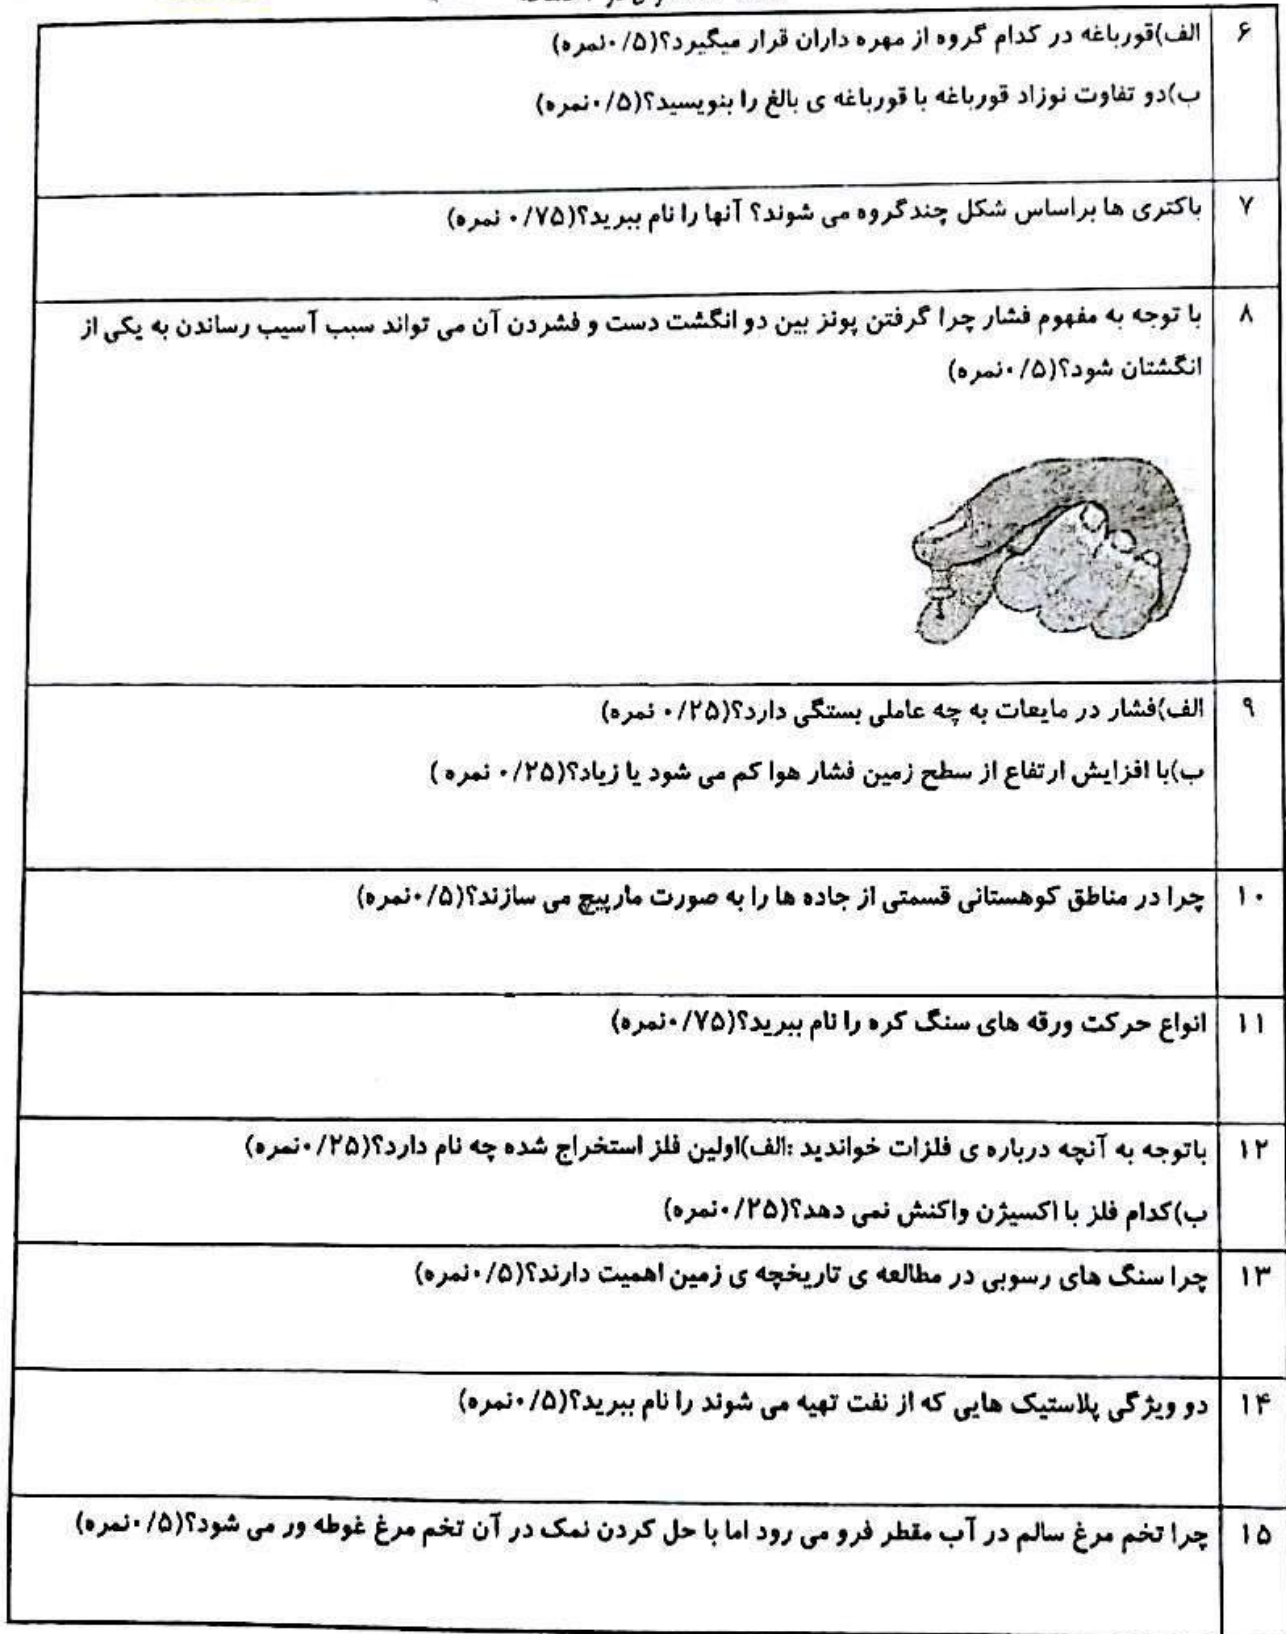 ۶
الف)قورباغه در کدام گروه از مهره داران قرار میگیرد؟(۰/۵نمره)
ب)دو تفاوت نوزاد قورباغه با قورباغه ی بالغ را بنویسید؟(۰/۵نمره)
۷
باکتری ها براساس شکل چندگروه می شوند؟ آنها را نام ببرید؟(۰/۷۵ نمره)
۸
با توجه به مفهوم فشار چرا گرفتن پونز بین دو انگشت دست و فشردن آن می تواند سبب آسیب رساندن به یکی از
انگشتان شود؟(۰/۵نمره)
۹
الف)فشار در مایعات به چه عاملی بستگی دارد؟(۰/۲۵ نمره)
ب)با افزایش ارتفاع از سطح زمین فشار هوا کم می شود یا زیاد؟(۰/۲۵ نمره )
۱۰
چرا در مناطق کوهستانی قسمتی از جاده ها را به صورت مارپیچ می سازند؟(۰/۵نمره)
۱۱
انواع حرکت ورقه های سنگ کره را نام ببرید؟(۰/۷۵نمره)
۱۲
باتوجه به آنچه درباره ی فلزات خواندید :الف)اولین فلز استخراج شده چه نام دارد؟(۰/۲۵نمره)
ب)کدام فلز با اکسیژن واکنش نمی دهد؟(۰/۲۵نمره)
۱۳
چرا سنگ های رسوبی در مطالعه ی تاریخچه ی زمین اهمیت دارند؟(۰/۵نمره)
۱۴
دو ویژگی پلاستیک هایی که از نفت تهیه می شوند را نام ببرید؟(۰/۵نمره)
۱۵
چرا تخم مرغ سالم در آب مقطر فرو می رود اما با حل کردن نمک در آن تخم مرغ غوطه ور می شود؟(۰/۵نمره)